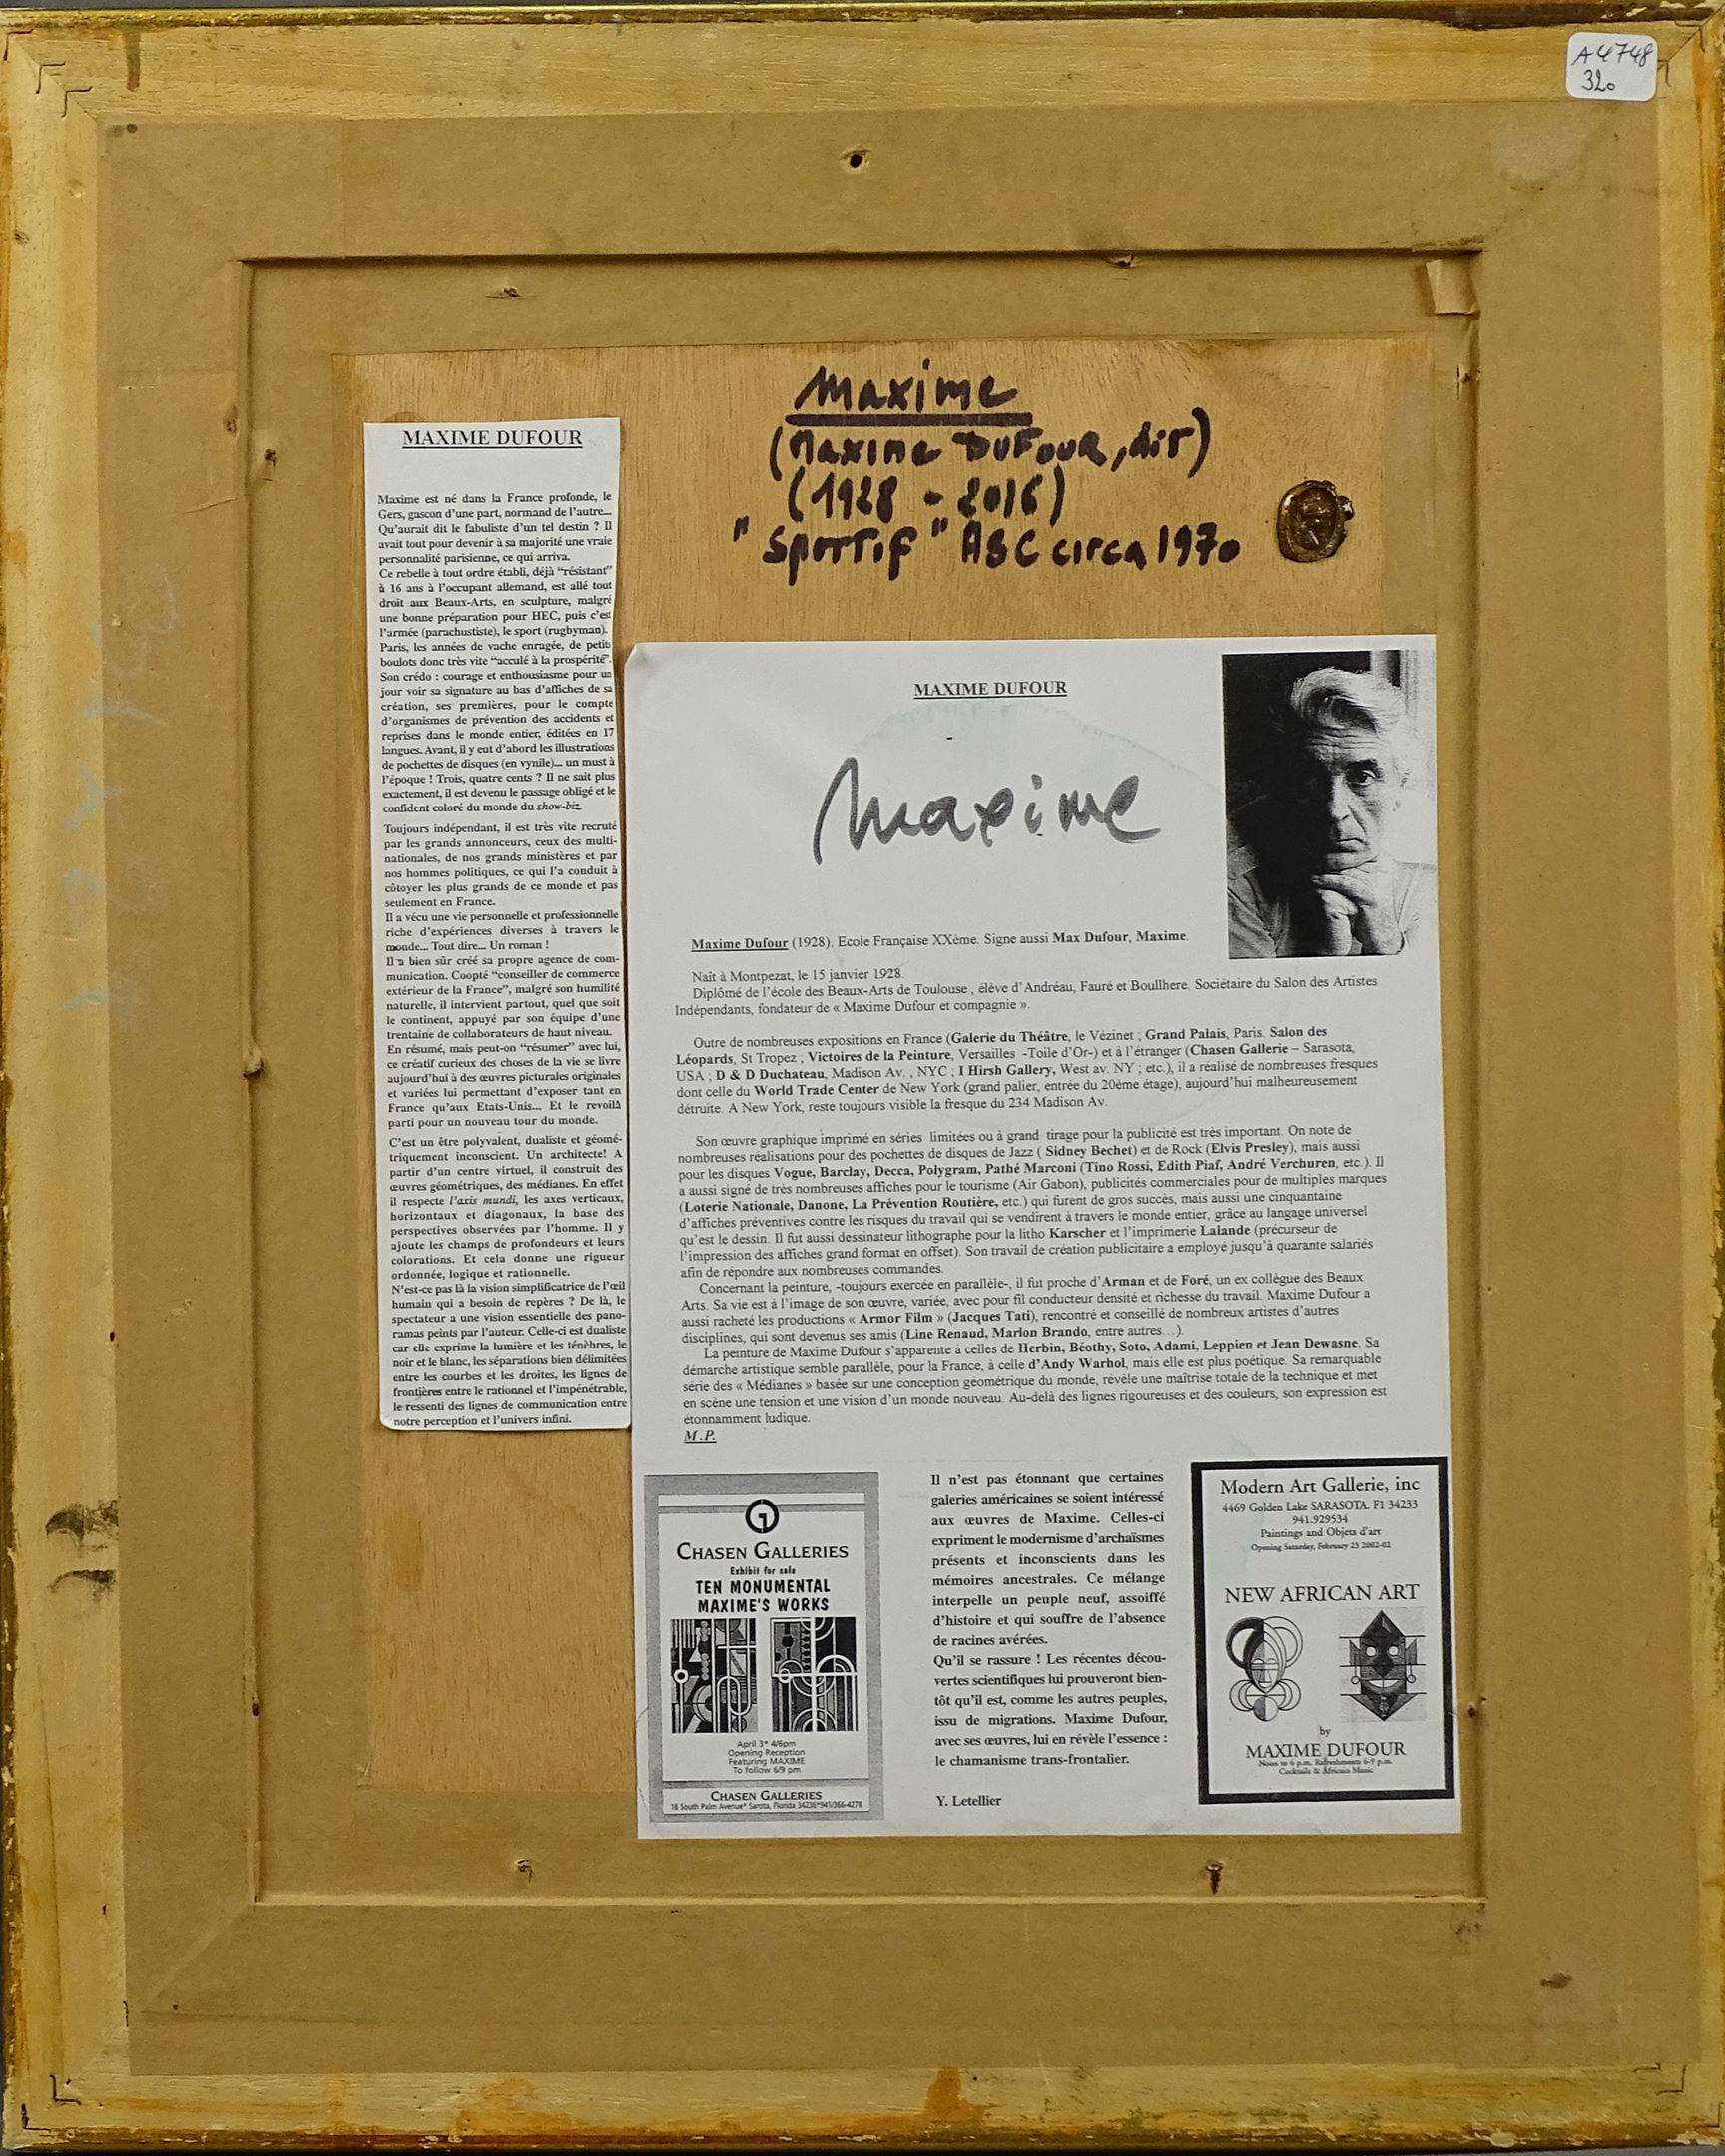 A4748
320
Maxime
(Maxime DUFOUR, dit)
(1928 - 2016)
"Sportif" HSC circa 1970
MAXIME DUFOUR
Maxime est né dans la France profonde, le
Gers, gascon d'une part, normand de l'autre...
Qu'aurait dit le fabuliste d'un tel destin ? Il
avait tout pour devenir à sa majorité une vraie
personnalité parisienne, ce qui arriva.
Ce rebelle à tout ordre établi, déjà "résistant"
à 16 ans à l'occupant allemand, est allé tout
droit aux Beaux-Arts, en sculpture, malgré
une bonne préparation pour HEC, puis c'est
l'armée (parachustiste), le sport (rugbyman).
Paris, les années de vache enragée, de petits
boulots donc très vite "acculé à la prospérité".
Son crédo : courage et enthousiasme pour un
jour voir sa signature au bas d'affiches de sa
création, ses premières, pour le compte
d'organismes de prévention des accidents et
reprises dans le monde entier, éditées en 17
langues. Avant, il y eut d'abord les illustrations
de pochettes de disques (en vynile)... un must à
l'époque ! Trois, quatre cents ? Il ne sait plus
exactement, il est devenu le passage obligé et le
confident coloré du monde du show-biz.
Toujours indépendant, il est très vite recruté
par les grands annonceurs, ceux des multi-
nationales, de nos grands ministères et par
nos hommes politiques, ce qui l'a conduit à
côtoyer les plus grands de ce monde et pas
seulement en France.
Il a vécu une vie personnelle et professionnelle
riche d'expériences diverses à travers le
monde... Tout dire... Un roman !
Il a bien sûr créé sa propre agence de com-
munication. Coopté "conseiller de commerce
extérieur de la France", malgré son humilité
naturelle, il intervient partout, quel que soit
le continent, appuyé par son équipe d'une
trentaine de collaborateurs de haut niveau.
En résumé, mais peut-on "résumer" avec lui,
ce créatif curieux des choses de la vie se livre
aujourd'hui à des œuvres picturales originales
et variées lui permettant d'exposer tant en
France qu'aux Etats-Unis... Et le revoilà
parti pour un nouveau tour du monde.
C'est un être polyvalent, dualiste et géomé-
triquement inconscient. Un architecte! A
partir d'un centre virtuel, il construit des
œuvres géométriques, des médianes. En effet
il respecte l'axis mundi, les axes verticaux,
horizontaux et diagonaux, la base des
perspectives observées par l'homme. Il y
ajoute les champs de profondeurs et leurs
colorations. Et cela donne une rigueur
ordonnée, logique et rationnelle.
N'est-ce pas là la vision simplificatrice de l'œil
humain qui a besoin de repères ? De là, le
spectateur a une vision essentielle des pano-
ramas peints par l'auteur. Celle-ci est dualiste
car elle exprime la lumière et les ténèbres, le
noir et le blanc, les séparations bien délimitées
entre les courbes et les droites, les lignes de
frontières entre le rationnel et l'impénétrable,
le ressenti des lignes de communication entre
notre perception et l'univers infini.
MAXIME DUFOUR
Maxime
Maxime Dufour (1928). Ecole Française XXème. Signe aussi Max Dufour, Maxime.
Naît à Montpezat, le 15 janvier 1928.
Diplômé de l'école des Beaux-Arts de Toulouse , élève d'Andréau, Fauré et Boullhere. Sociétaire du Salon des Artistes
Indépendants, fondateur de « Maxime Dufour et compagnie ».
Outre de nombreuses expositions en France (Galerie du Théâtre, le Vézinet ; Grand Palais, Paris. Salon des
Léopards, St Tropez ; Victoires de la Peinture, Versailles -Toile d'Or-) et à l'étranger (Chasen Gallerie – Sarasota,
USA ; D & D Duchateau, Madison Av. , NYC ; I Hirsh Gallery, West av. NY ; etc.), il a réalisé de nombreuses fresques
dont celle du World Trade Center de New York (grand palier, entrée du 20ème étage), aujourd'hui malheureusement
détruite. A New York, reste toujours visible la fresque du 234 Madison Av.
Son œuvre graphique imprimé en séries limitées ou à grand tirage pour la publicité est très important. On note de
nombreuses réalisations pour des pochettes de disques de Jazz ( Sidney Bechet) et de Rock (Elvis Presley), mais aussi
pour les disques Vogue, Barclay, Decca, Polygram, Pathé Marconi (Tino Rossi, Edith Piaf, André Verchuren, etc.). Il
a aussi signé de très nombreuses affiches pour le tourisme (Air Gabon), publicités commerciales pour de multiples marques
(Loterie Nationale, Danone, La Prévention Routière, etc.) qui furent de gros succès, mais aussi une cinquantaine
d'affiches préventives contre les risques du travail qui se vendirent à travers le monde entier, grâce au langage universel
qu'est le dessin. Il fut aussi dessinateur lithographe pour la litho Karscher et l'imprimerie Lalande (précurseur de
l'impression des affiches grand format en offset). Son travail de création publicitaire a employé jusqu'à quarante salariés
afin de répondre aux nombreuses commandes.
Concernant la peinture, -toujours exercée en parallèle-, il fut proche d'Arman et de Foré, un ex collègue des Beaux
Arts. Sa vie est à l'image de son œuvre, variée, avec pour fil conducteur densité et richesse du travail. Maxime Dufour a
aussi racheté les productions « Armor Film » (Jacques Tati), rencontré et conseillé de nombreux artistes d'autres
disciplines, qui sont devenus ses amis (Line Renaud, Marlon Brando, entre autres…).
La peinture de Maxime Dufour s'apparente à celles de Herbin, Béothy, Soto, Adami, Leppien et Jean Dewasne. Sa
démarche artistique semble parallèle, pour la France, à celle d'Andy Warhol, mais elle est plus poétique. Sa remarquable
série des « Médianes » basée sur une conception géométrique du monde, révèle une maîtrise totale de la technique et met
en scène une tension et une vision d'un monde nouveau. Au-delà des lignes rigoureuses et des couleurs, son expression est
étonnamment ludique.
M.P.
CHASEN GALLERIES
Exhibit for sale
TEN MONUMENTAL
MAXIME'S WORKS
April 3* 4/6pm
Opening Reception
Featuring MAXIME
To follow 6/9 pm
CHASEN GALLERIES
16 South Palm Avenue* Sarota, Florida 34236*941/366-4278
Il n'est pas étonnant que certaines
galeries américaines se soient intéressé
aux œuvres de Maxime. Celles-ci
expriment le modernisme d'archaïsmes
présents et inconscients dans les
mémoires ancestrales. Ce mélange
interpelle un peuple neuf, assoiffé
d'histoire et qui souffre de l'absence
de racines avérées.
Qu'il se rassure ! Les récentes décou-
vertes scientifiques lui prouveront bien-
tôt qu'il est, comme les autres peuples,
issu de migrations. Maxime Dufour,
avec ses œuvres, lui en révèle l'essence :
le chamanisme trans-frontalier.
Y. Letellier
Modern Art Gallerie, inc
4469 Golden Lake SARASOTA. F1 34233
941.929534
Paintings and Objets d'art
Opening Saturday, February 23 2002-02
NEW AFRICAN ART
by
MAXIME DUFOUR
Noon to 6 p.m. Refreshments 6-9 p.m.
Cocktails & Africain Music